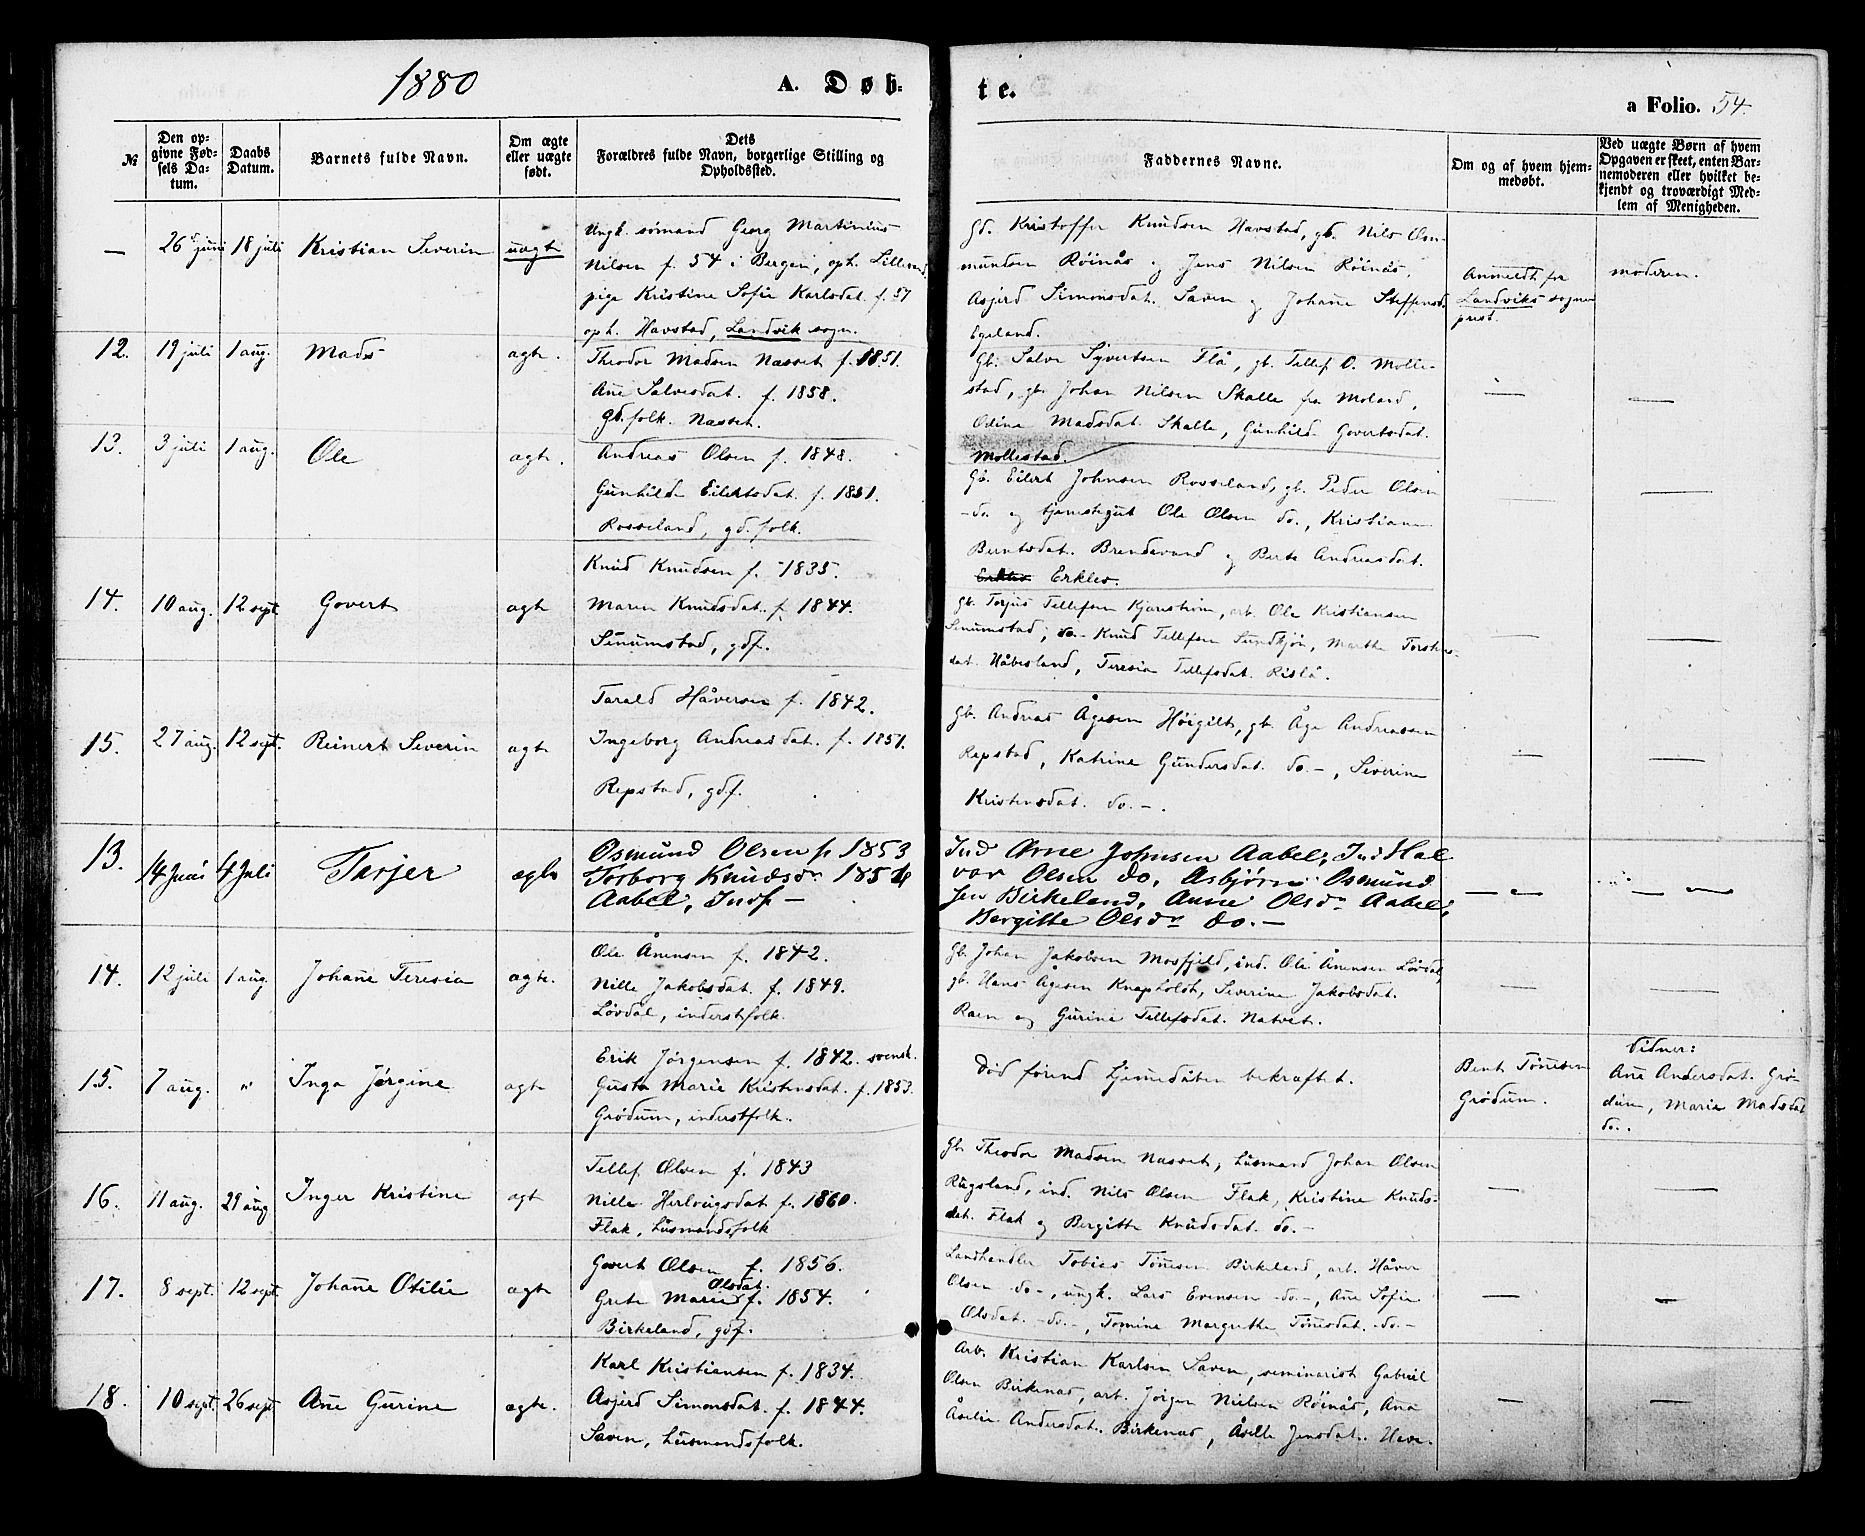 1880
A. Døb-
te.
a Folio. 54.
№
Den op-
givne Fød-
sels Da-
tum.
Daabs
Datum.
Barnets fulde Navn.
Om ægte
eller uægte
født.
Dets
Forældres fulde Navn, borgerlige Stilling og
Opholdssted.
Faddernes Navne.
Om og af hvem hjem-
medøbt.
Ved uægte Børn af hvem
Opgaven er skeet, enten Bar-
nemoderen eller hvilket be-
kjendt og troværdigt Med-
lem af Menigheden.
— 26 juni 18 juli Kristian Severin uægte
Ungk. sømand Georg Martinius
Nilsen f. 54 i Bergen, oph. Lillesand,
pige Kristine Sofie Karlsdat. f. 57
oph. Havstad, Landvik sogn.
gd. Kristoffer Knudsen Havstad, gb. Nils Osm-
mundsen Röinås og Jens Nilsen Röinås,
Asjerd Simonsdat. Saven og Johañe Steffensd.
Egeland.
Anmeldt for
Landviks sogne-
prest.
moderen.
12. 19 juli 1 aug. Mads ægte.
Theodor Madsen Næsset f. 1851.
Añe Salvesdat. f. 1858.
gb.folk. Næsset.
Gb. Salve Syvertsen Flå, gb. Tellef O. Molle-
stad, gb. Johan Nilsen Skalle fra Moland,
Odine Madsdat. Skalle, Gunhild Govertsdat.
Mollestad.
13. 3 juli 1 aug. Ole ægte.
Andreas Olsen f. 1848.
Gunhilde Eilertsdat. f. 1851.
Rosseland, gd.folk.
Gb. Eilert Johnsen Rosseland, gb. Peder Olsen
-do. og tjenestegut Ole Olsen do., Kristiane
Berntsdat. Brendevand og Berte Andreasdat.
Erklev Erklev.
14. 10 aug. 12 sept. Govert ægte
Knud Knudsen f. 1835.
Maren Knudsdat. f. 1844.
Senumstad, gdf.
gb. Torjus Tellefsen Kjærstrøm, arb. Ole Kristiansen
Senumstad, do- Knud Tellefsen Sundtjøn, Marthe Torstens-
dat. Håbesland, Teresia Tellefsdat. Rislå.
15. 27 aug. 12 sept. Reinert Severin ægte
Tarald Håversen f. 1842.
Ingeborg Andreasdat. f. 1851.
Repstad, gdf.
gb. Andreas Ågesen Höigilt, gb. Åge Andreassen
Repstad, Katrine Gundersdat. do.-, Severine
Kristensdat. do.-.
13. 14 Juni 4 Juli Tarjer ægte
Osmund Olsen f. 1853
Torborg Knudsdr 1854
Aabel, Indf—
Ind Arne Johnsen Aabel, Ind Hal
vor Olsen do, Asbjørn Osmund
sen Birkeland, Anne Olsdr Aabel,
Bergitte Olsdr do.—
14. 12 juli 1 aug. Johañe Teresia ægte.
Ole Ånensen f. 1842.
Nille Jakobsdat. f. 1849.
Lövdal, inderstfolk.
gb. Johan Jakobsen Mosfjeld, ind. Ole Ånensen Lövdal,
gb. Hans Ågesen Knapholdt, Severine Jakobsdat.
Raen og Gurine Tellefsdat. Natvet.
15. 7 aug. " Inga Jörgine ægte
Erik Jörgensen f. 1842. svensk.
Gusta Marie Kristensdat. f. 1853.
Grödum, inderstfolk.
Död førend hjemmedåben bekræftet.
Bent Töñesen
Grödum.
Vidner:
Añe Andersdat. Grö-
dum, Marie Madsdat
do..
16. 11 aug. 29 aug Inger Kristine ægt
Tellef Olsen f. 1843
Nille Herlougsdat f. 1860.
Flak, husmandsfolk
gb. Theodor Madsen Næsset, husmand Johan Olsen
Rugsland, ind. Nils Olsen Flak, Kristine Knuds-
dat. Flak og Bergitte Knudsdat. do.-
17. 8 sept. 12 sept. Johañe Otilie ægte
Govert Olsen f. 1856.
Olsdat.
Grete Marie f. 1854.
Birkeland, gdf.
Landhandler Tobias Töñesen Birkeland, arb. Håver
Olsen -do-, ungk. Lars Evensen -do.-, Añe Sofie
Olsdat. -do.-, Tomine Margrethe Töñesdat. -do.-
18. 10 sept. 26 sept Añe Gurine ægte.
Karl Kristiansen f. 1834.
Asjerd Simonsdat. f. 1844.
Saven, husmandsfolk.
Arb. Kristian Karlsen Saven, seminarist Gabriel
Olsen Birkenæs, arb. Jörgen Nielsen Röinås, Ana
Åselie Andersdat. Birkenæs, Åsille Jensdat. Heve-